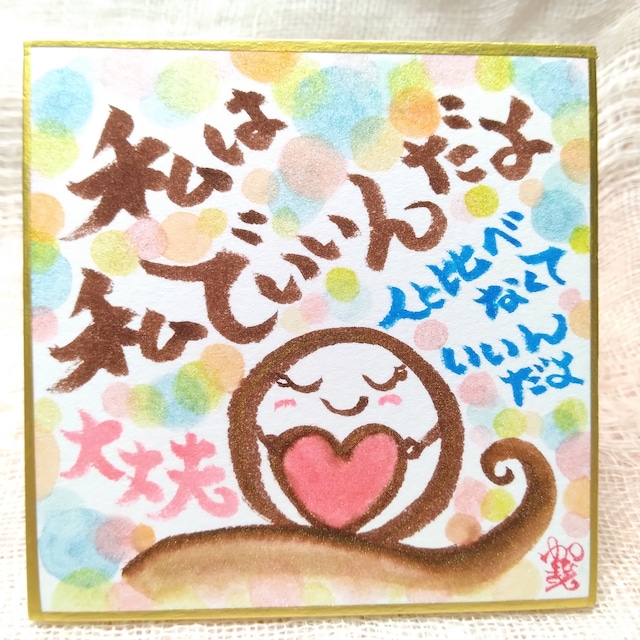 私は
私でいいんだよ
人と比べ
なくて
いいん
だよ
大丈夫